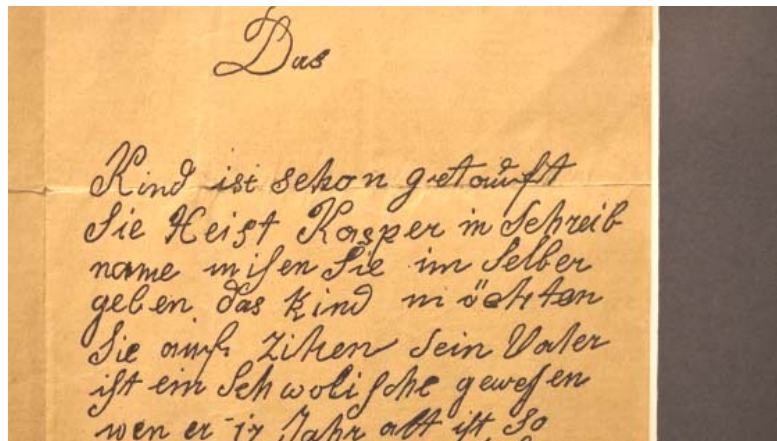 Das
Kind ist schon getauft
Sie Heist Kasper in Schreib
name misen Sie im Selber
geben das Kind möchten
Sie auf Zihen Sein Vater
ist ein Schwolische gewesen
wen er 17 Jahr alt ist so